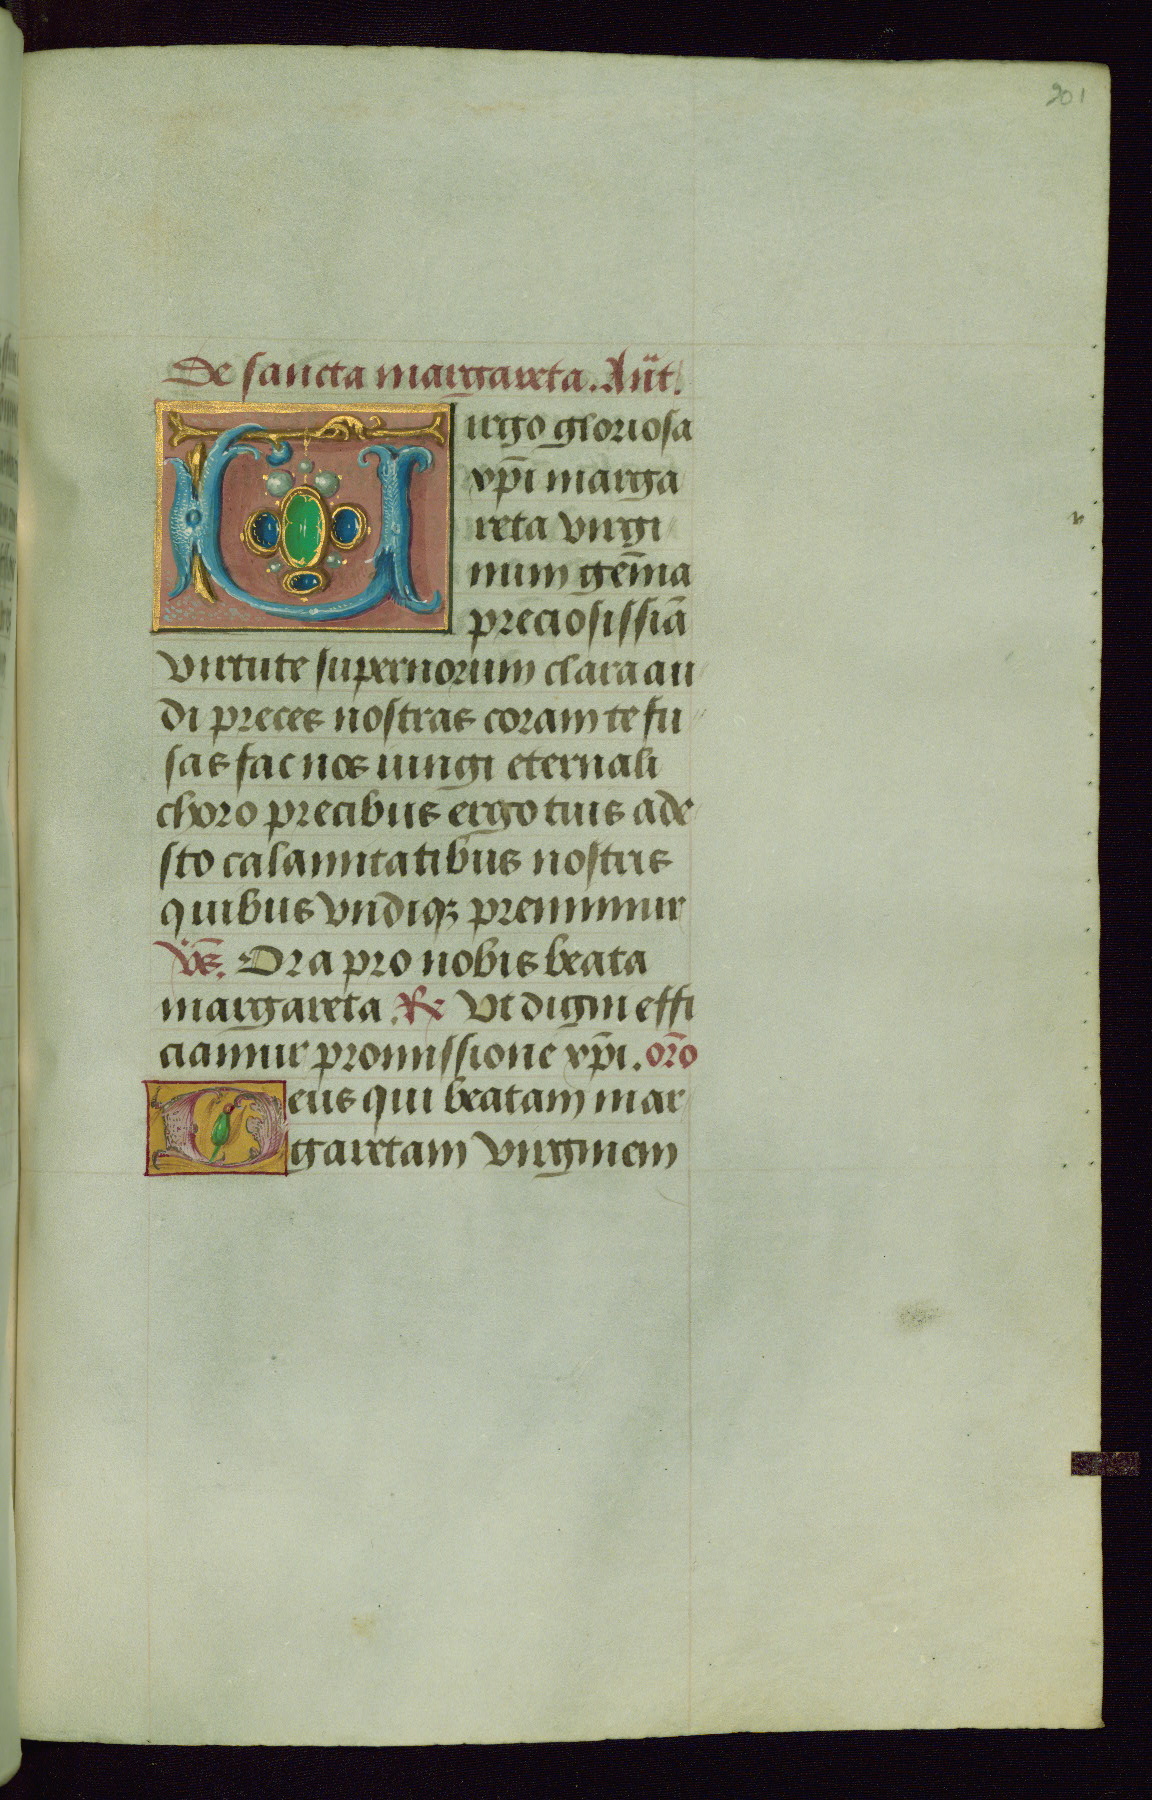 201
De sancta margareta. Añt.
Uirgo gloriosa
xp̄i marga
reta virgi
num gem̄a
preciosissiā
virtute supernorum clara au
di preces nostras coram te fu
sas fac nos iungi eternali
choro precibus ergo tuis ade
sto calamitatibus nostris
quibus vndiqꝫ premimur
Vs̄. Ora pro nobis beata
margareta. R℟ Vt digni effi
ciamur promissione xp̄i. orō
Deus qui beatam mar
garetam virginem